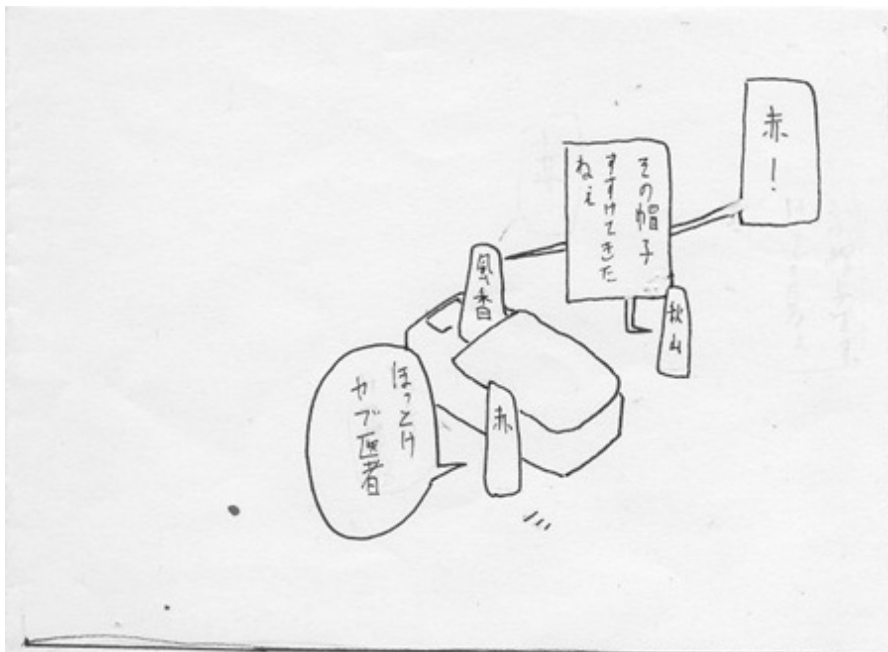 赤！
その帽子
すすけてきた
ねぇ
秋山
風香
赤
ほっとけ
ヤブ医者